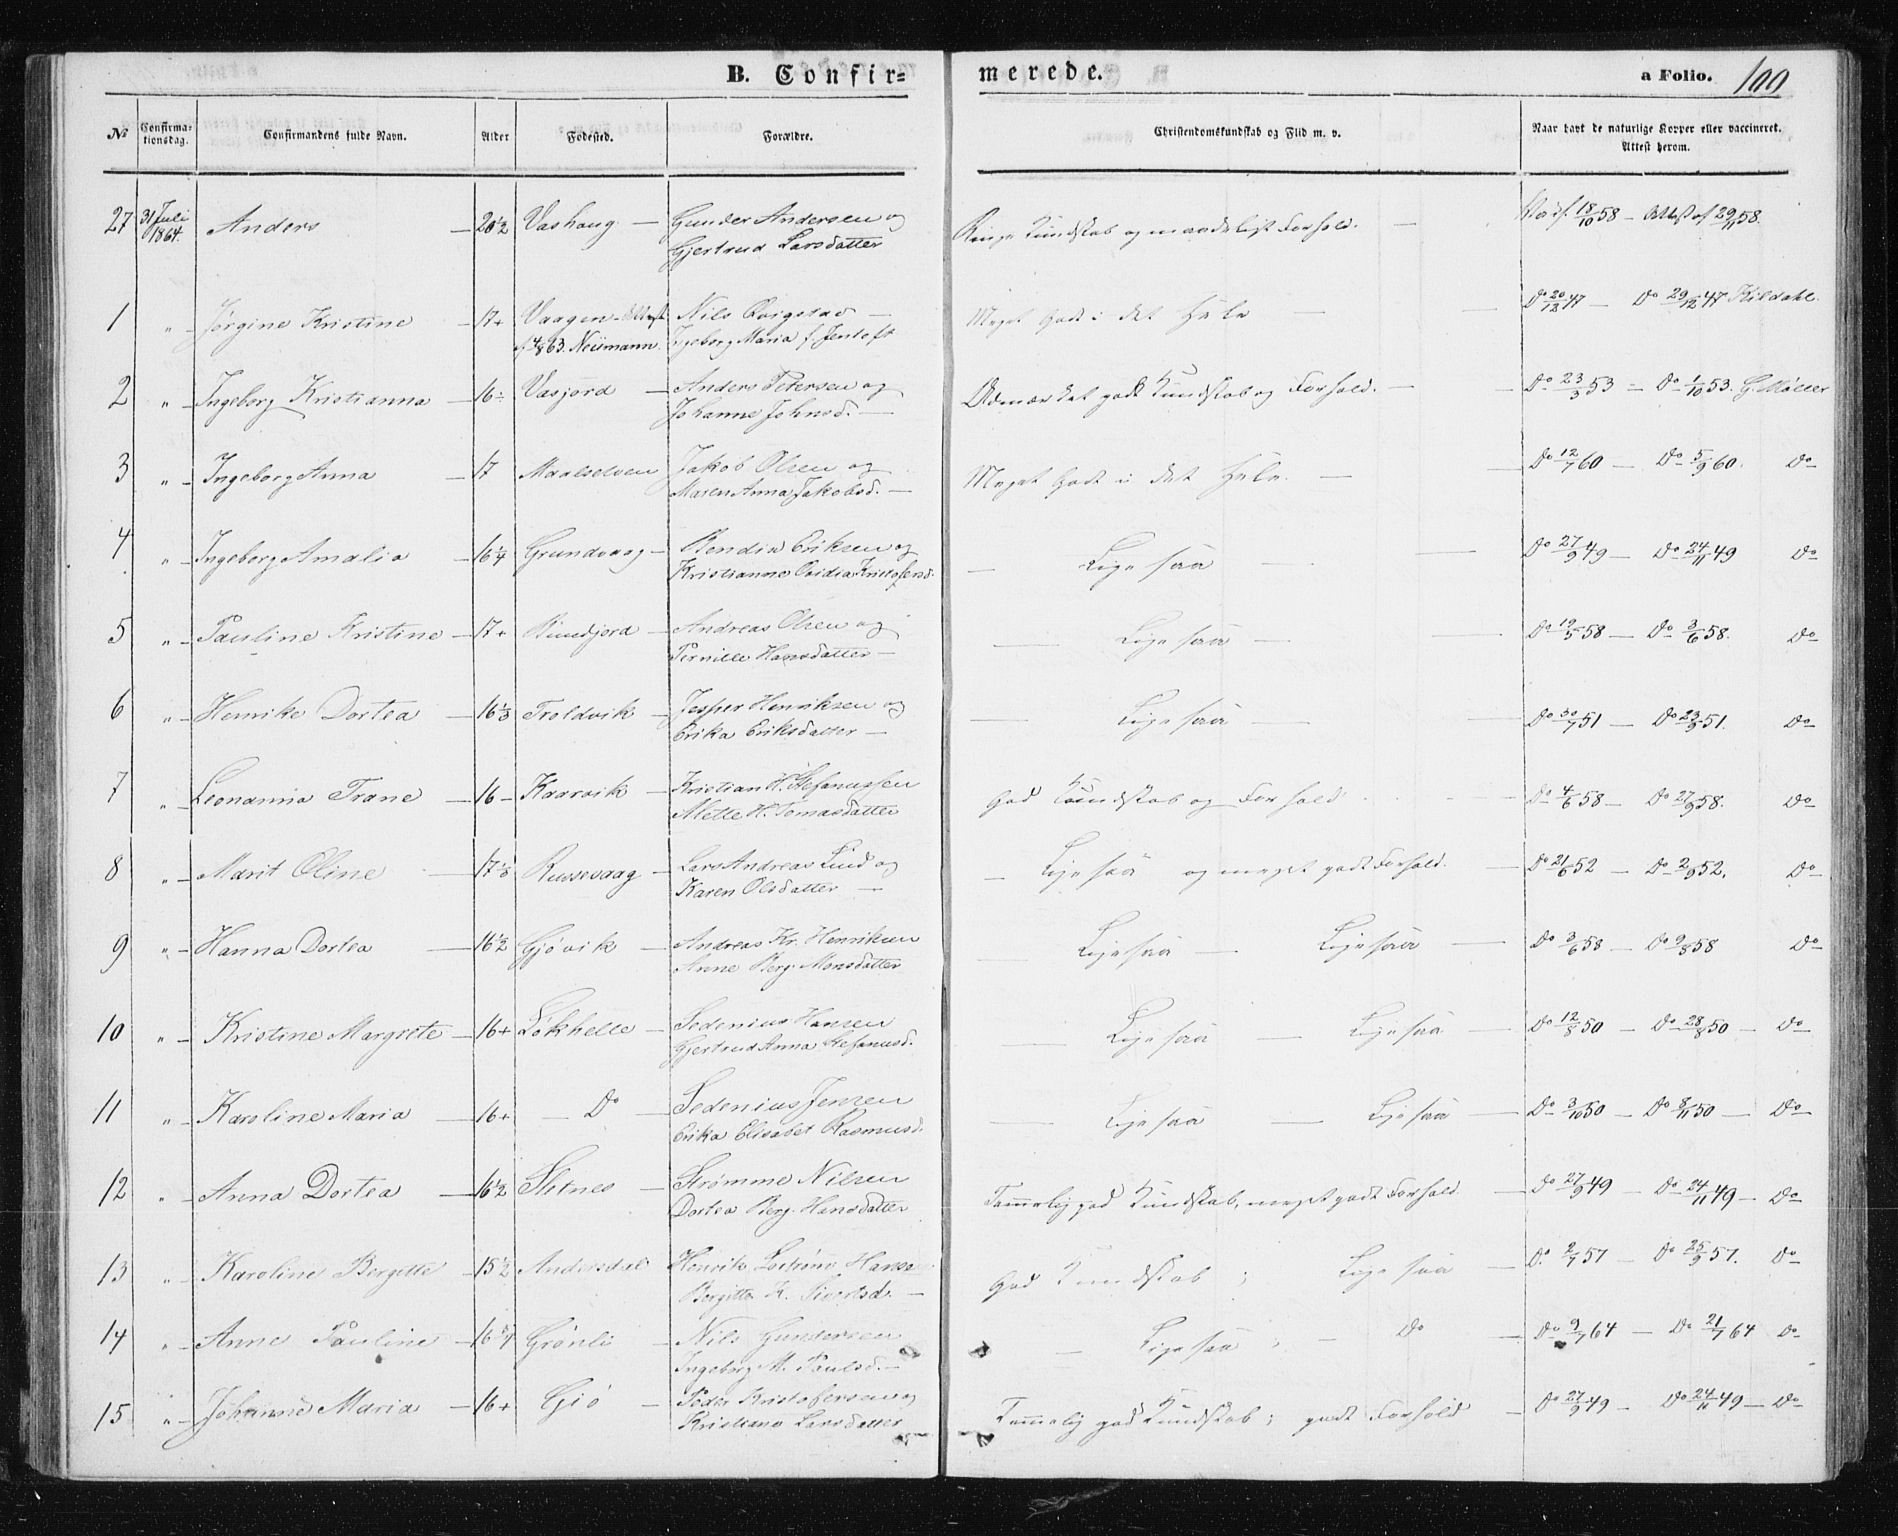 B. Confir=
merede.
a Folio. 100
No
Confirma-
tionsdag.
Confirmandens fulde Navn.
Alder
Fødested.
Forældre.
Christendomskundskab og Flid m. v.
Naar havt de naturlige Kopper eller vaccineret.
Attest herom.
27 31 Juli 1864. Anders — 20½ Vashaug — Gunder Andersen og
Gjertrud Larsdatter
Ringe Kundskab og maadeligt Forhold. — 18/10 58 — Attest af 29/11 58.
1 " – Jørgine Kristine — 17+ Vaagen - Attest Nils Qvigstad —
f 4/8 63. Neümann. Ingeborg Maria f. Jentoft
Meget Godt i det Hele — Do 20/12 47 — Do 29/12 47 Kildahl.
2 " – Ingeborg Kristianna — 16÷ Vasjord — Anders Petersen og
Johanne Johnsd. —
Udmærket god Kundskab og Forhold. — Do 23/3 53 — Do 1/10 53. G. Møller
3 " – Ingeborg Anna — 17 Maalselven Jakob Olsen og
Maren Anna Jakobsd. —
Meget Godt i det Hele. — Do 12/7 60 — Do 5/9 60. Do
4 " – Ingeborg Amalia — 16¼ Grundvaag — Bendix Eriksen og
Kristianne Ovidia Kristofersd.
— Lige saa — Do 27/9 49 — Do 24/11 49 Do
5 " – Pauline Kristine — 17+ Sundjord — Andreas Olsen og
Pernille Hansdatter —
— Lige saa — Do 19/5 58 — Do 3/6 58. Do
6 " – Henrike Dortea — 16⅓ Troldvik — Jesper Henriksen og
Erika Eriksdatter —
— Lige saa — Do 30/7 51 — Do 23/9 51. Do
7 " – Leonanna Trane — 16 – Kaarvik — Kristian H. Stefanussen
Mette H. Tomasdatter
God Kundskab og Forhold — Do 4/6 58 — Do 27/9 58. Do
8 " – Marit Oline — 17⅛ Russevaag — Lars Andreas Lind og
Karen Olsdatter —
— Lige saa og meget godt Forhold. — Do 21/6 52 — Do 2/9 52. Do
9 " – Hanna Dortea — 16½ Gjøvik — Andreas Kr. Henriksen
Anne Berg. Monsdatter
— Lige saa — Lige saa — Do 3/6 58 — Do 9/8 58 Do
10 " – Kristine Margrete — 16+ Løkhelle — Sedenius Hansen
Gjertrud Anna Stefanusd.
— Lige saa — Lige saa — Do 12/8 50 — Do 28/8 50 — Do
11 " – Karoline Maria — 16+ — Do — Sedenius Jensen
Erika Elisabet Rasmusd.
— Lige saa — Lige saa — Do 3/10 50 — Do 8/11 50 — Do
12 " – Anna Dortea — 16½ Sletnes — Strømme Nilsen
Dortea Berg. Hansdatter
Temmelig god Kundskab, meget godt Forhold. — Do 27/9 49 — Do 24/11 49 — Do
13 " – Karoline Bergitte — 15½ Andersdal Henrik Hans
Bergitte K. Sivertsd. —
God Kundskab ; Lige saa — Do. 2/7 57 — Do 25/9 57. Do
14 " – Anne Pauline — 16 Grønli — Nils Gundersen
Ingeborg M. Paulsd. —
— Lige saa ; — Do — Do 9/7 64 — Do 21/7 64 Do
15 " – Johanne Maria — 16+ Gjø — Peder Kristofersen og
Kristiane Larsdatter
Temmelig god Kundskab ; godt Forhold — Do 27/9 49 Do 24/11 49 — Do